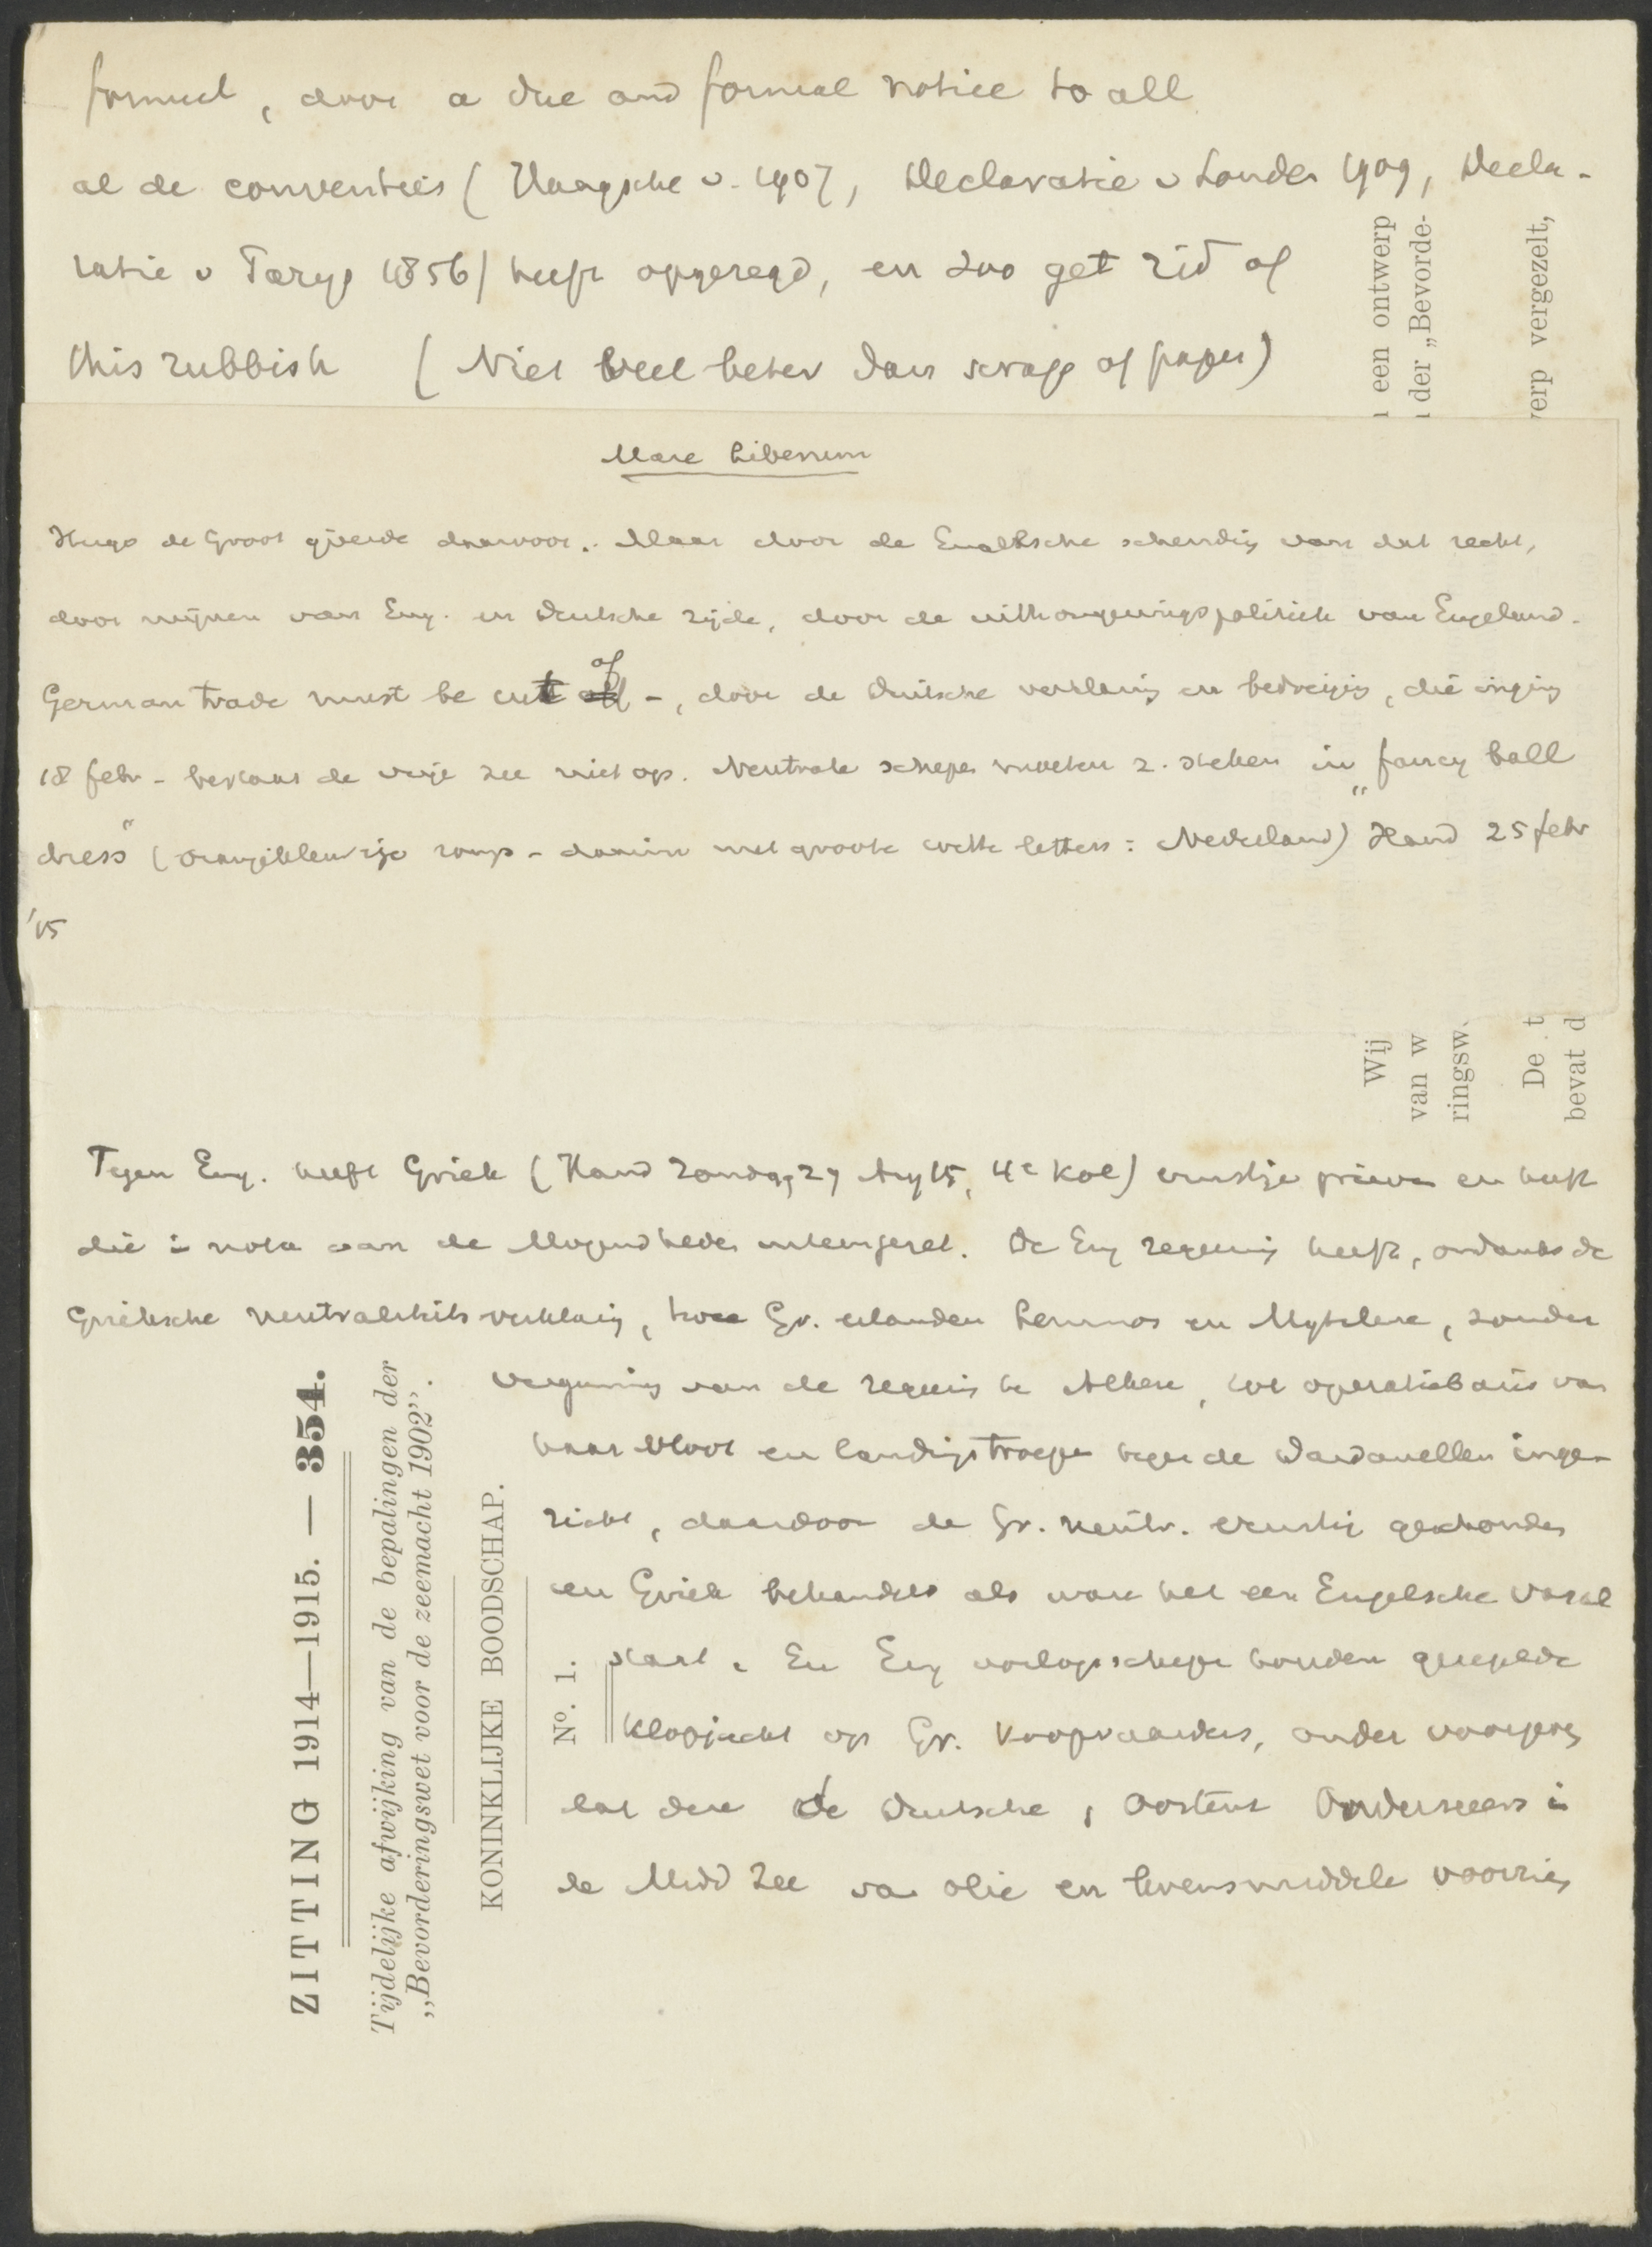 formeel, door a due and formal notice to all
al de conventies (Haagsche v. 1907, Declaratie v Londen 1909, Decla-
ratie v Parijs 1856) heeft opgezegd, en zoo get rid of
this rubbish (Niet veel beter dan scraps of paper)
een ontwerp
der „Bevorde-
erp vergezelt,
Mare Liberum
Hugo de Groot ijverde daarvoor. Maar door de Engelsche schending van dat recht,
door mijnen van Eng. en Duitsche zijde, door de uithongeringspolitiek van Engeland.
German trade must be cut of –, door de Duitsche verklaring en bedreiging, die inging
18 febr – bestaat de vrije zee niet op. Neutrale schepen moeten z. steken in „fancy ball
dress" (oranjekleurige romp – daarin met groote witte letters: Nederland) Hand 25 febr
'15
Wij
van w
ringsw
De t
bevat d
Tegen Eng. heeft Griek (Hand Zondag 29 Aug 15, 4e kol) ernstige grieven en heeft
die in nota aan de Mogendheden uiteengezet. De Eng regeering heeft, ondanks de
Grieksche neutraliteitsverklaring, twee Gr. eilanden Lemnos en Mytilene, zonder
vergunning van de regeering te Athene, tot operatiebasis van
haar vloot en landingstroepen tegen de Dardanellen inge-
richt, daardoor de Gr. neutr. ernstig geschonden
en Griek behandeld als ware het een Engelsche vasal
staat. En Eng oorlogsschepen houden geregelde
klopjacht op Gr. koopvaarders, onder voorgeven
dat deze de Duitsche, Oostenr Onderzeeërs in
de Midd Zee van olie en levensmiddelen voorzien
ZITTING 1914—1915. — 354.
Tijdelijke afwijking van de bepalingen der
„Bevorderingswet voor de zeemacht 1902".
KONINKLIJKE BOODSCHAP.
Nº. 1.